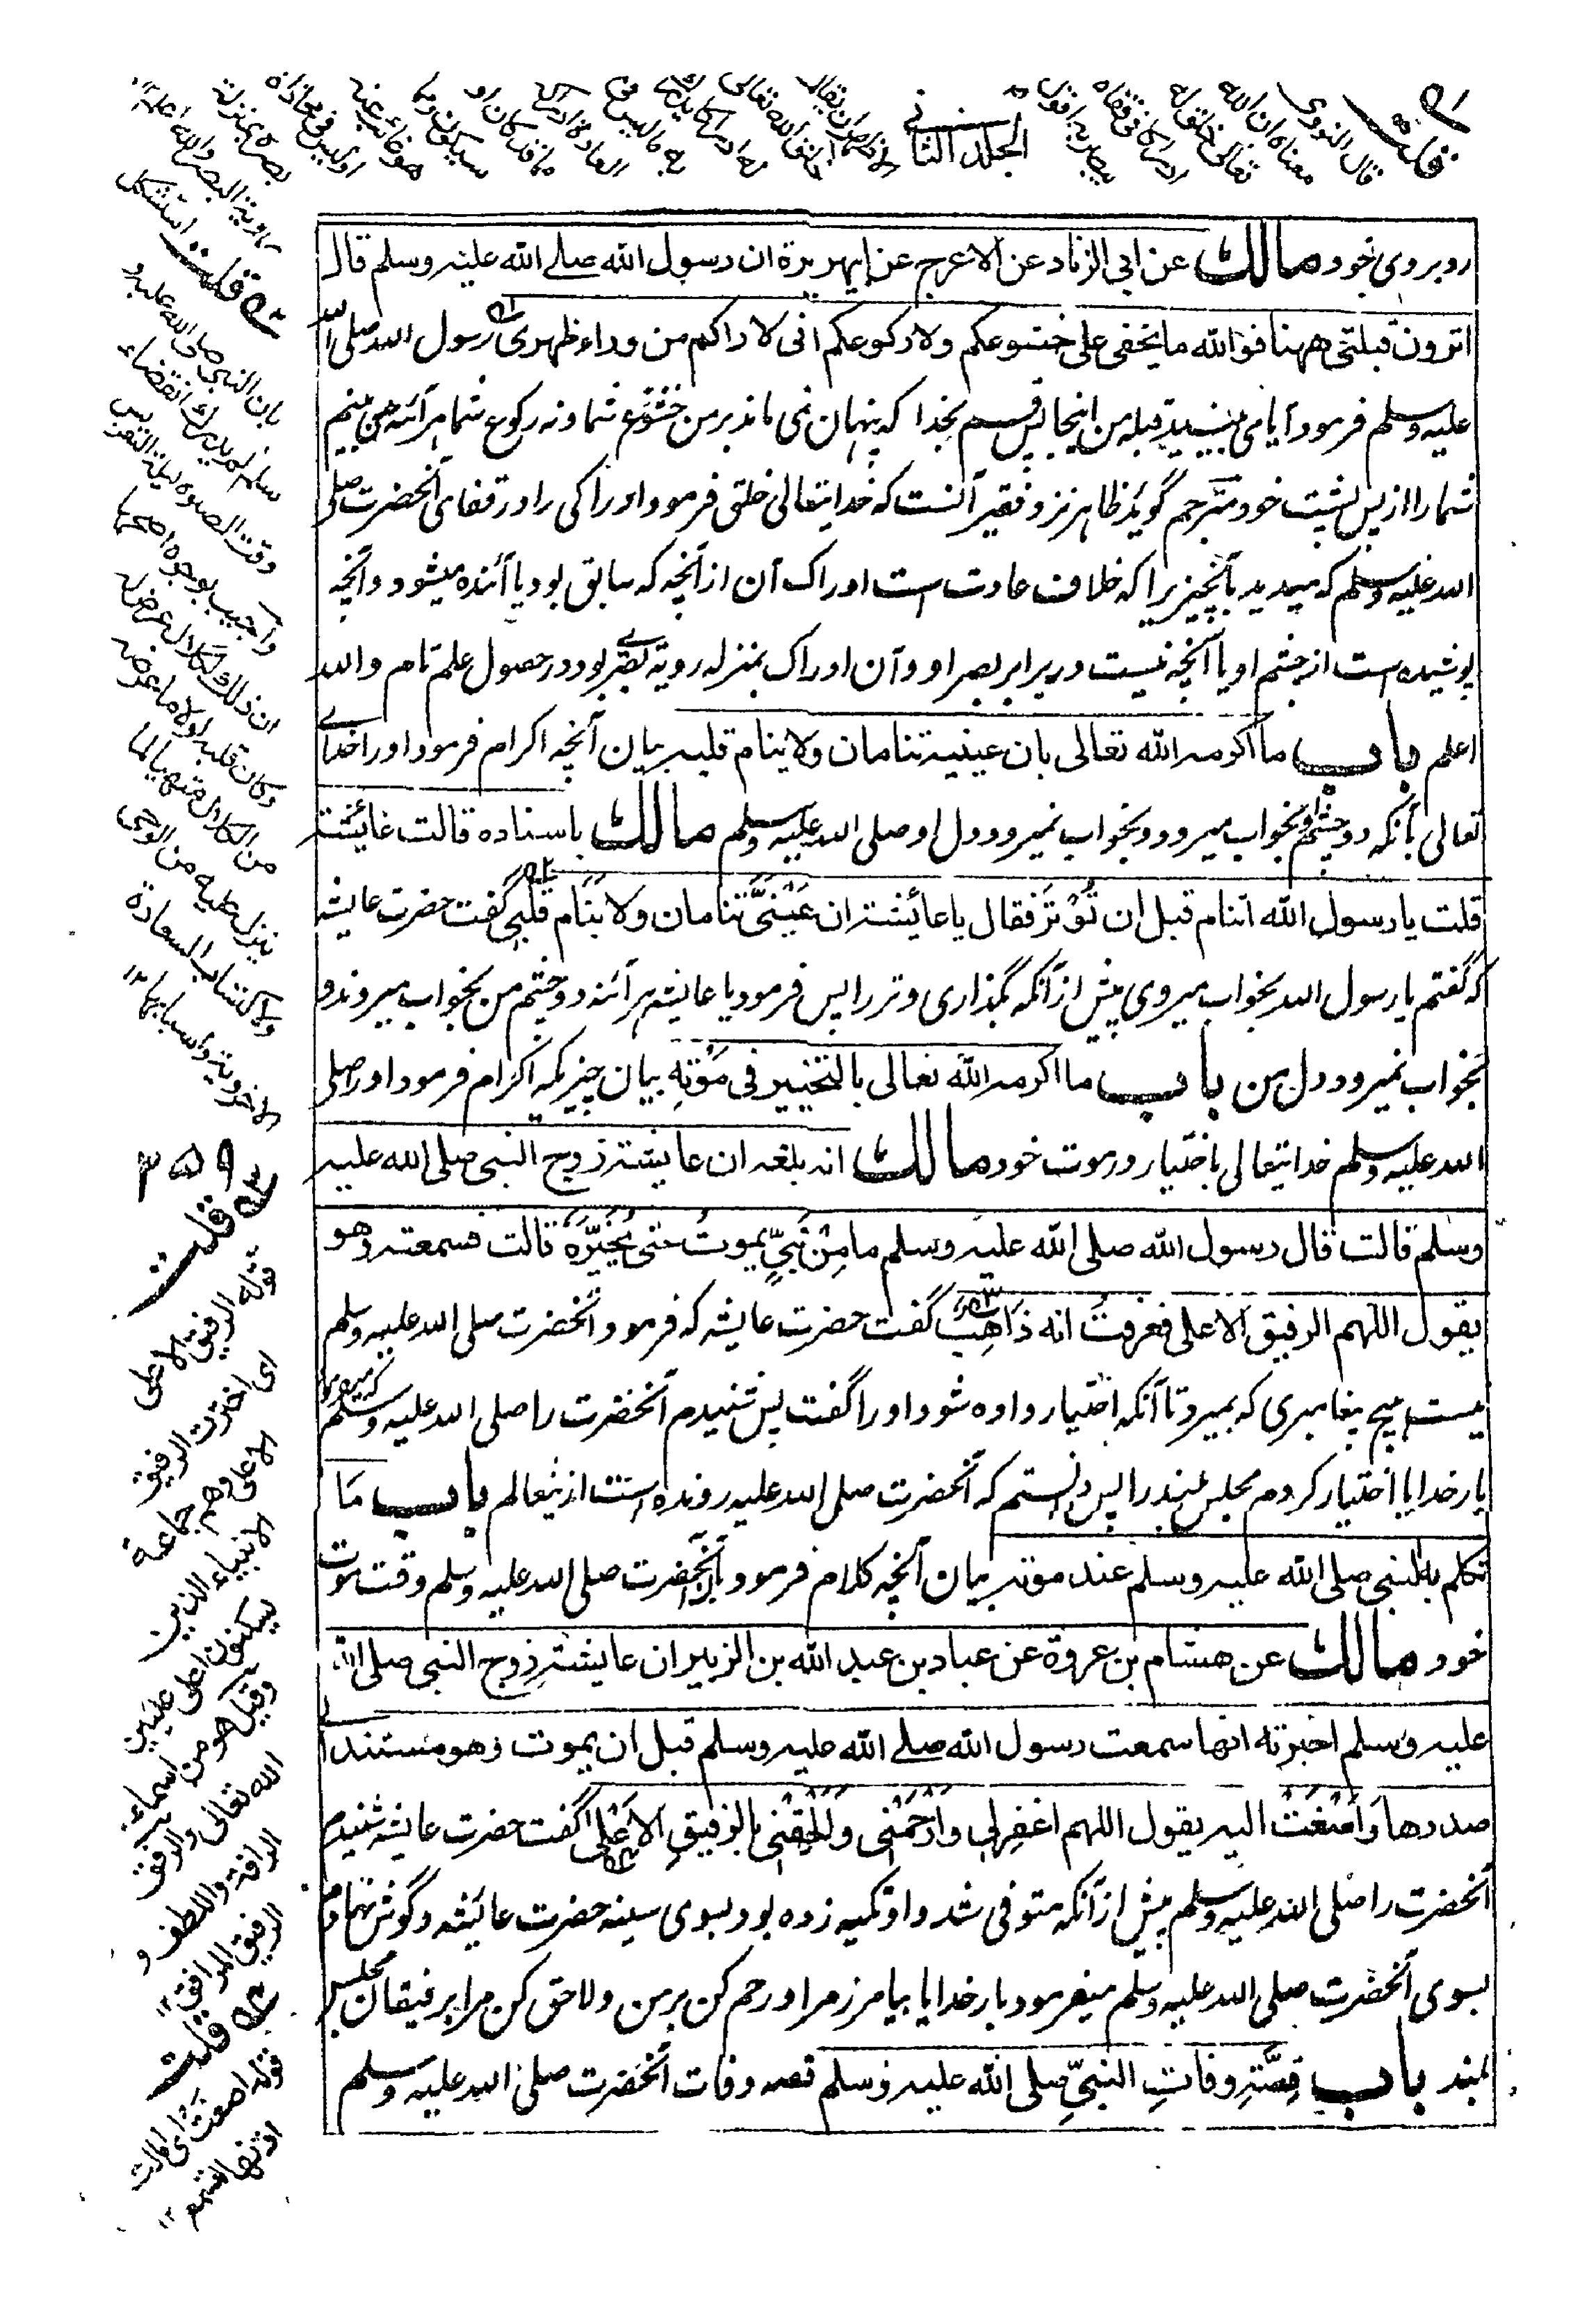 الجلد الثاني
له قلت
قال النووي
معناه ان الله
تعالى خلق له
ادراكا في قفاه
يبصر به
بصره بمنزلة
رؤية البصر والله اعلم ١٢
روبروی خود مالك عن ابي الزناد عن الاعرج عن ابي هريرة ان رسول الله صلے الله عليه وسلم قال
اترون قبلتي ههنا فوالله ما يخفى علي خشوعكم ولا ركوعكم اني لاراكم من وراء ظهري رسول الله صلى الله
عليه وسلم فرمود آیا می بینید قبله من اینجا پس قسم بخدا که پنهان نمی ماند بر من خشوع شما و نه رکوع شما هر آئنه می بینم
شما را از پس پشت خود مترجم گوید ظاهر نزد فقیر آنست که خدایتعالی خلق فرمود ادراکی را در قفای آنحضرت صلی
الله علیه وسلم که میدید بآن چیزیرا که خلاف عادت است ادراک آن از آنچه که سابق بود یا آئنده میشود و آنچه
پوشیده است از چشم او یا آنچه نیست در برابر بصر او و آن ادراک بمنزله رویة بصری بود در حصول علم تام والله
اعلم باب ما اكرمه الله تعالى بان عينيه تنامان ولا ينام قلبه بیان آنچه اکرام فرمود او را خدای
تعالی بآنکه دو چشم او بخواب میرود و بخواب نمیرود دل او صلی الله علیه وسلم مالك باسناده قالت عائشة
قلت يا رسول الله اتنام قبل ان تُوْتِرَ فقال يا عائشة ان عَيْنَيَّ تنامان ولا يَنَام قلبي گفت حضرت عایشه
که گفتم یا رسول الله بخواب میروی پیش از آنکه بگذاری وتر را پس فرمود یا عایشه هر آئنه دو چشم من بخواب میروند و
بخواب نمیرود دل من باب ما اكرمه الله تعالى بالتخيير في مَوْتِهِ بیان چیزیکه اکرام فرمود او را صلی
الله علیه وسلم خدایتعالی باختیار در موت خود مالك انه بلغه ان عايشة زوج النبي صلى الله عليه
وسلم قالت قال رسول الله صلى الله عليه وسلم ما مِنْ نَبِيٍّ يموتُ حتى يُخَيَّرَ قالت فسمعته وهو
يقول اللهم الرفيق الاعلى فعرفتُ انه ذَاهِب گفت حضرت عایشه که فرمود آنحضرت صلی الله علیه وسلم
نیست هیچ پیغامبری که بمیرد تا آنکه اختیار داده شود او را گفت پس شنیدم آنحضرت را صلی الله علیه وسلم که میفرمود
بار خدایا اختیار کردم مجلس بلند را پس دانستم که آنحضرت صلی الله علیه رونده است ازینعالم باب مَا
تكلم به النبي صلى الله عليه وسلم عند موته بیان آنچه کلام فرمود بآن آنحضرت صلی الله علیه وسلم وقت موت
خود مالك عن هشام بن عروة عن عباد بن عبد الله بن الزبير ان عايشة زوج النبي صلى الله
عليه وسلم اخبرته انها سمعت رسول الله صلے الله عليه وسلم قبل ان يموت وهو مستند الى
صدرها وَاَصْغَتْ اليه يقول اللهم اغفِر لي وَارْحَمْنِي وَاَلْحِقْنِي بالرفيقِ الاَعْلى گفت حضرت عایشه شنیدم
آنحضرت را صلی الله علیه وسلم پیش از آنکه متوفی شد و او تکیه زده بود بسوی سینه حضرت عائیشه و گوش نهادم
بسوی آنحضرت صلی الله علیه وسلم میفرمود بار خدایا بیامرز مرا و رحم کن بر من و لاحق کن مرا برفیقان مجلس
بلند باب قِصَّة وفاتِ النبيِّ صلى الله عليه وسلم قصه وفات آنحضرت صلی الله علیه وسلم
له قلت استشكل
بان النبي صلى الله عليه و
سلم لم يدرك انقضاء
وقت الصلوة ليلة التعريس
واجيب بوجوه اصحها
ان ذلك
وكان قلبه
من الكلال متهيأ لما
ينزل عليه من الوحي
واكتساب السعادة
الاخروية واسبابها ١٢
٣٥٩
له قلت
قوله الرفيق الاعلى
اى اخترت الرفيق
الاعلى وهم جماعة
الانبياء الذين
يسكنون اعلى عليين
وقيل هو من اسماء
الله تعالى والرفق
الرافة واللطف و
الرفيق المرافق ١٢
له قلت
قوله اصغت اى امالت
اذنها لتسمع ١٢